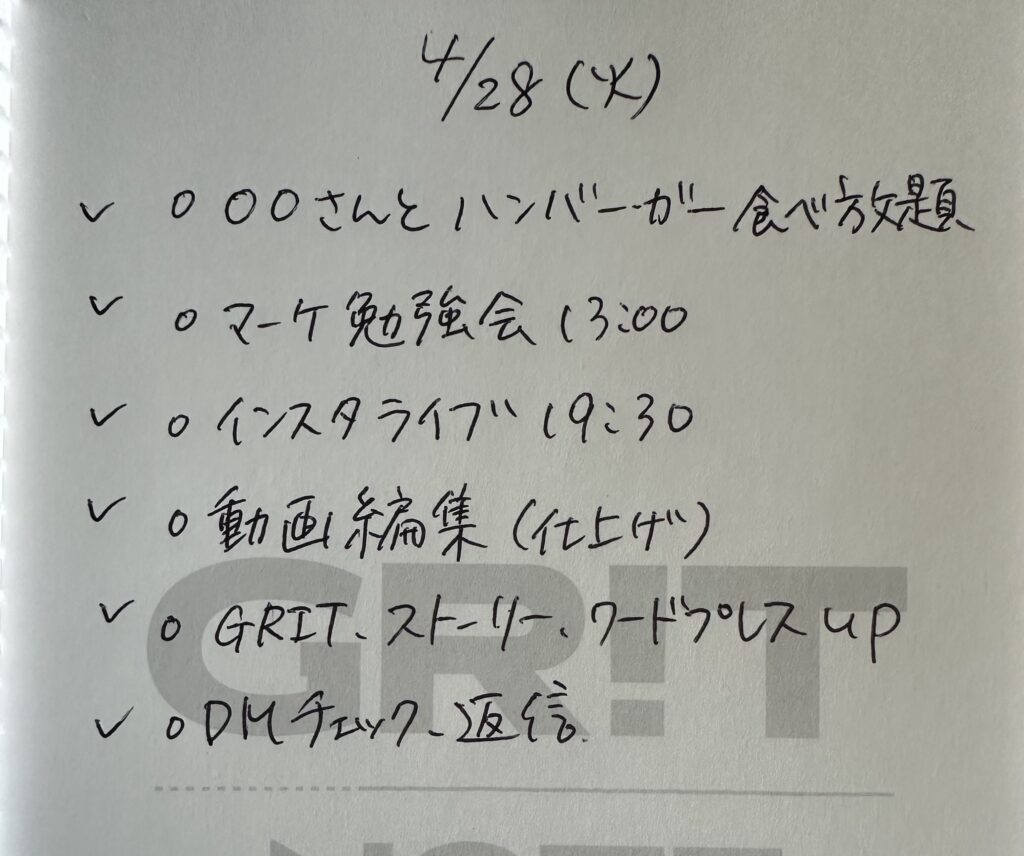 4/28 (火)
✓ ○ ○○さんとハンバーガー食べ放題
✓ ○ マーケ勉強会 13:00
✓ ○ インスタライブ 19:30
✓ ○ 動画編集 (仕上げ)
✓ ○ GRIT、ストーリー、ワードプレス up
✓ ○ DMチェック、返信
GR!T
NOTE